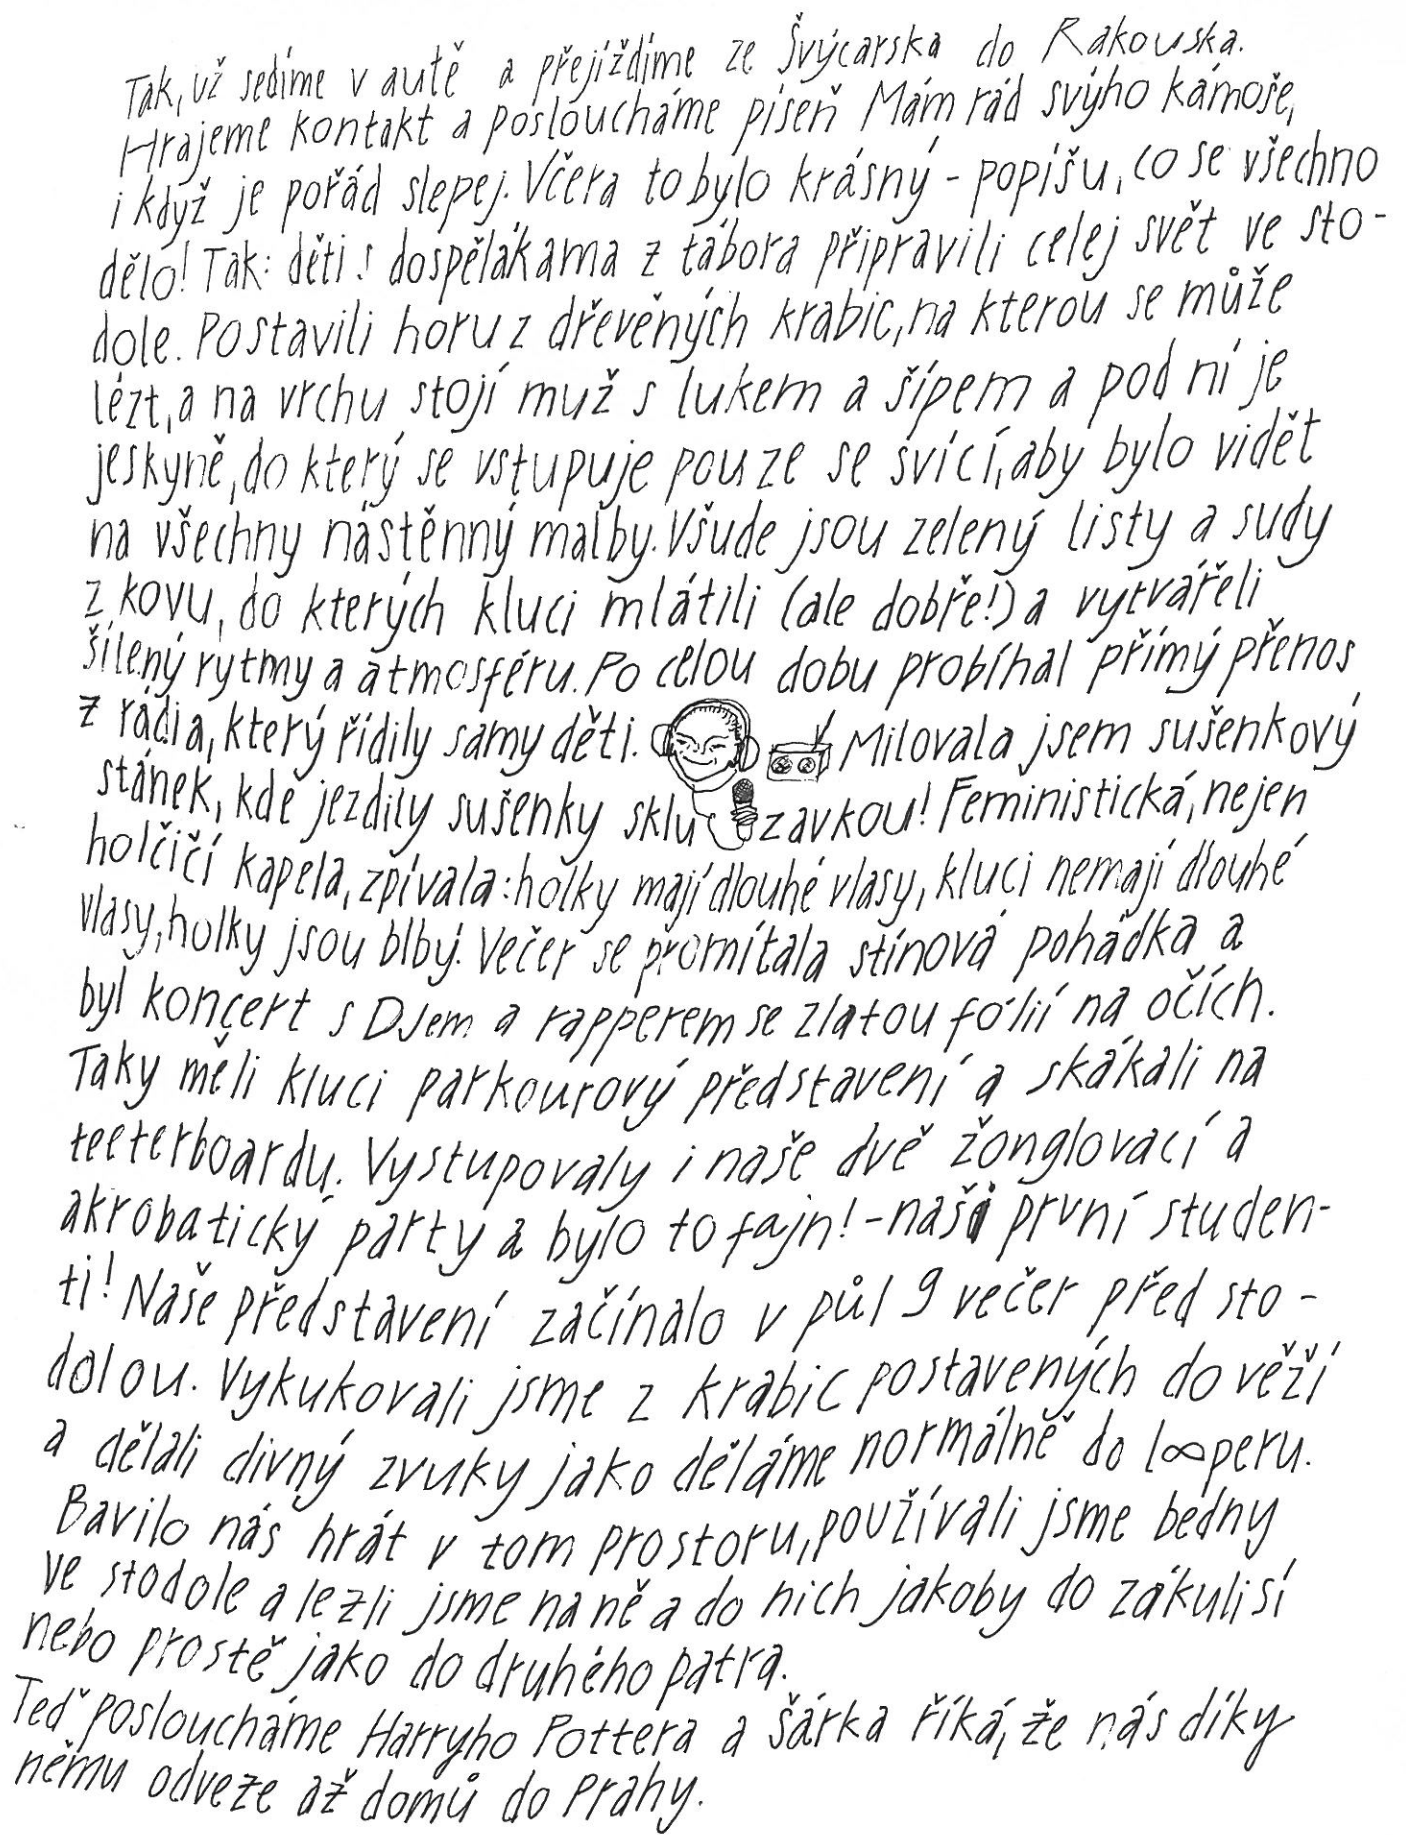 Tak, už sedíme v autě a přejíždíme ze Švýcarska do Rakouska.
Hrajeme kontakt a posloucháme píseň Mám rád svýho kámoše,
i když je pořád slepej. Včera to bylo krásný - popíšu, co se všechno
dělo! Tak: děti s dospělákama z tábora připravili celej svět ve sto-
dole. Postavili horu z dřevěných krabic, na kterou se může
lézt, a na vrchu stojí muž s lukem a šípem a pod ní je
jeskyně, do který se vstupuje pouze se svící, aby bylo vidět
na všechny nástěnný malby. Všude jsou zelený listy a sudy
z kovu, do kterých kluci mlátili (ale dobře!) a vytvářeli
šílený rytmy a atmosféru. Po celou dobu probíhal přímý přenos
z rádia, který řídily samy děti. Milovala jsem sušenkový
stánek, kde jezdily sušenky skluzavkou! Feministická, nejen
holčičí kapela, zpívala: holky mají dlouhé vlasy, kluci nemají dlouhé
vlasy, holky jsou blbý. Večer se promítala stínová pohádka a
byl koncert s DJem a rapperem se zlatou fólií na očích.
Taky měli kluci parkourový představení a skákali na
teeterboardu. Vystupovaly i naše dvě žonglovací a
akrobatický party a bylo to fajn! - naši první studen-
ti! Naše představení začínalo v půl 9 večer před sto-
dolou. Vykukovali jsme z krabic postavených do věží
a dělali divný zvuky jako děláme normálně do l∞peru.
Bavilo nás hrát v tom prostoru, používali jsme bedny
ve stodole a lezli jsme na ně a do nich jakoby do zákulisí
nebo prostě jako do druhého patra.
Teď posloucháme Harryho Pottera a Šárka říká, že nás díky
němu odveze až domů do Prahy.